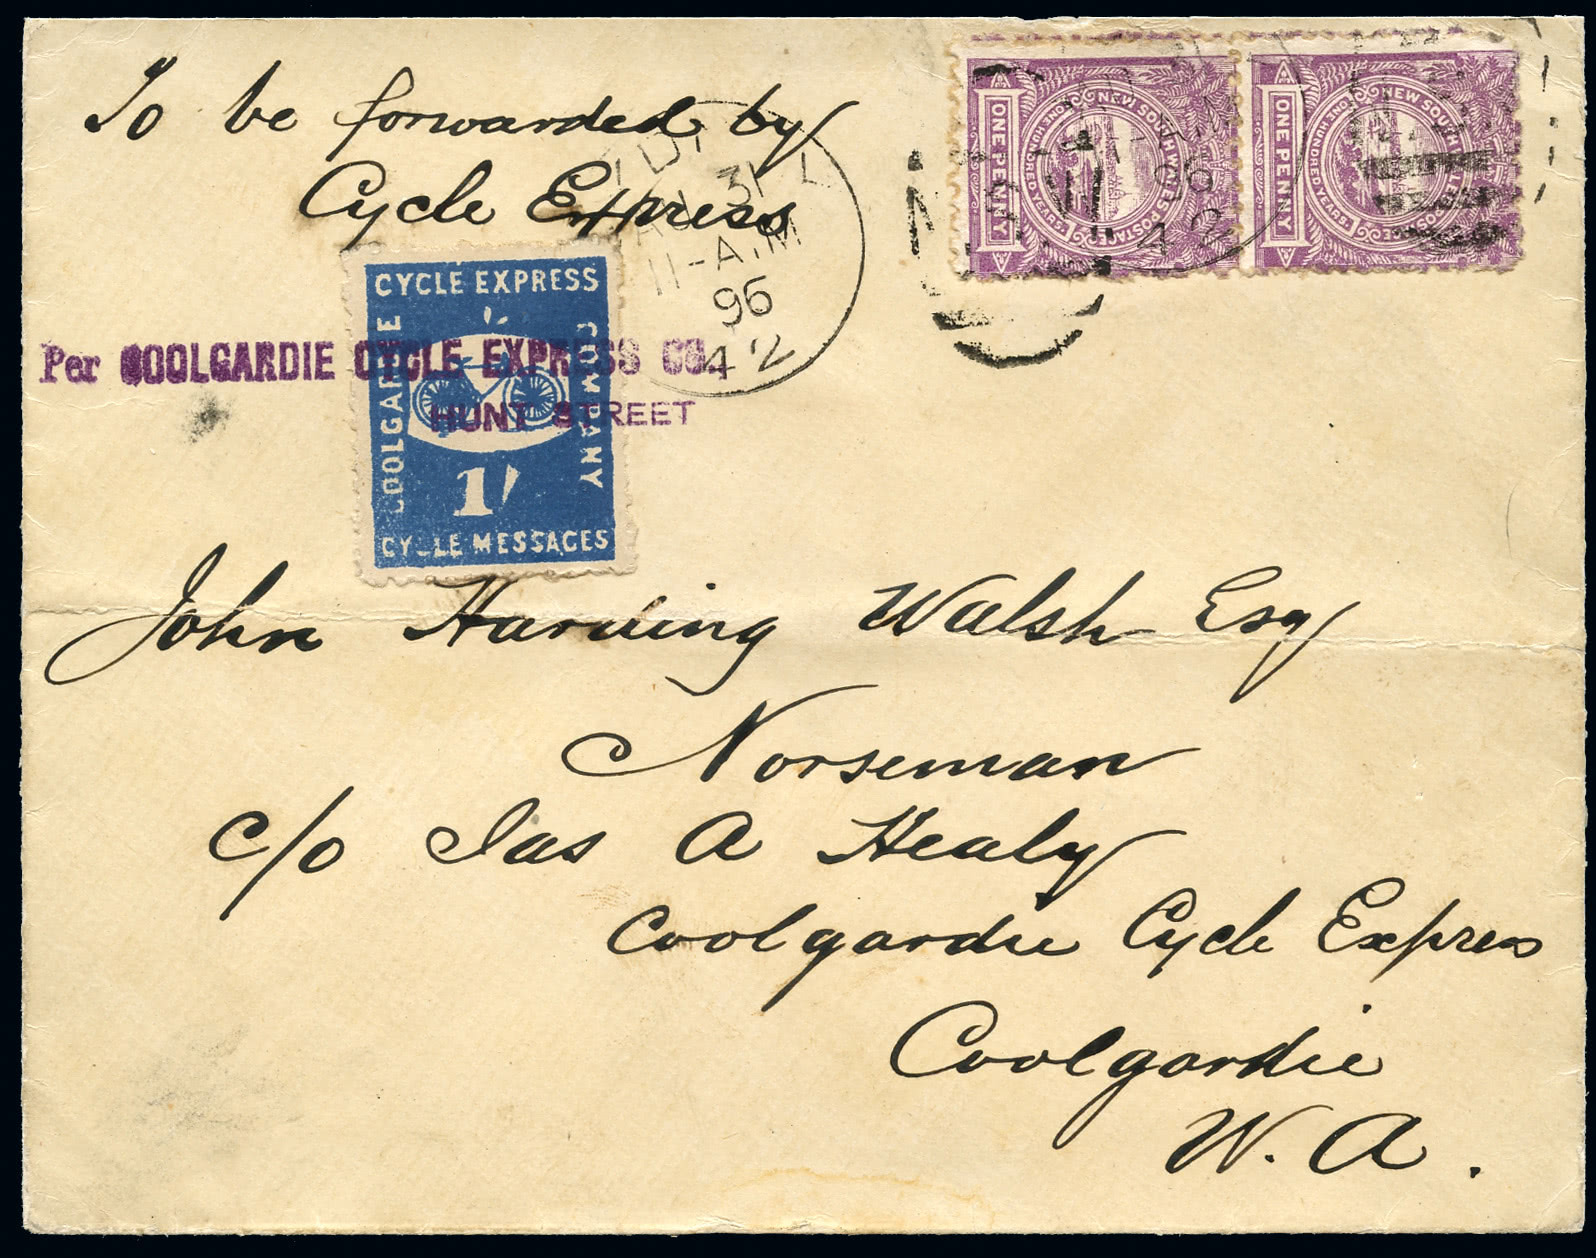 To be forwarded by
Cycle Express
JA 31
11-A.M
96
4 2
ONE PENNY
NEW SOUTH WALES POSTAGE
ONE HUNDRED YEARS
96
4 2
ONE PENNY
NEW SOUTH WALES POSTAGE
ONE HUNDRED YEARS
CYCLE EXPRESS
COOLGARDIE
COMPANY
1/
CYCLE MESSAGES
Per COOLGARDIE CYCLE EXPRESS CO.
HUNT STREET
John Harding Walsh Esq
Norseman
c/o Jas A Healy
Coolgardie Cycle Express
Coolgardie
W. A.